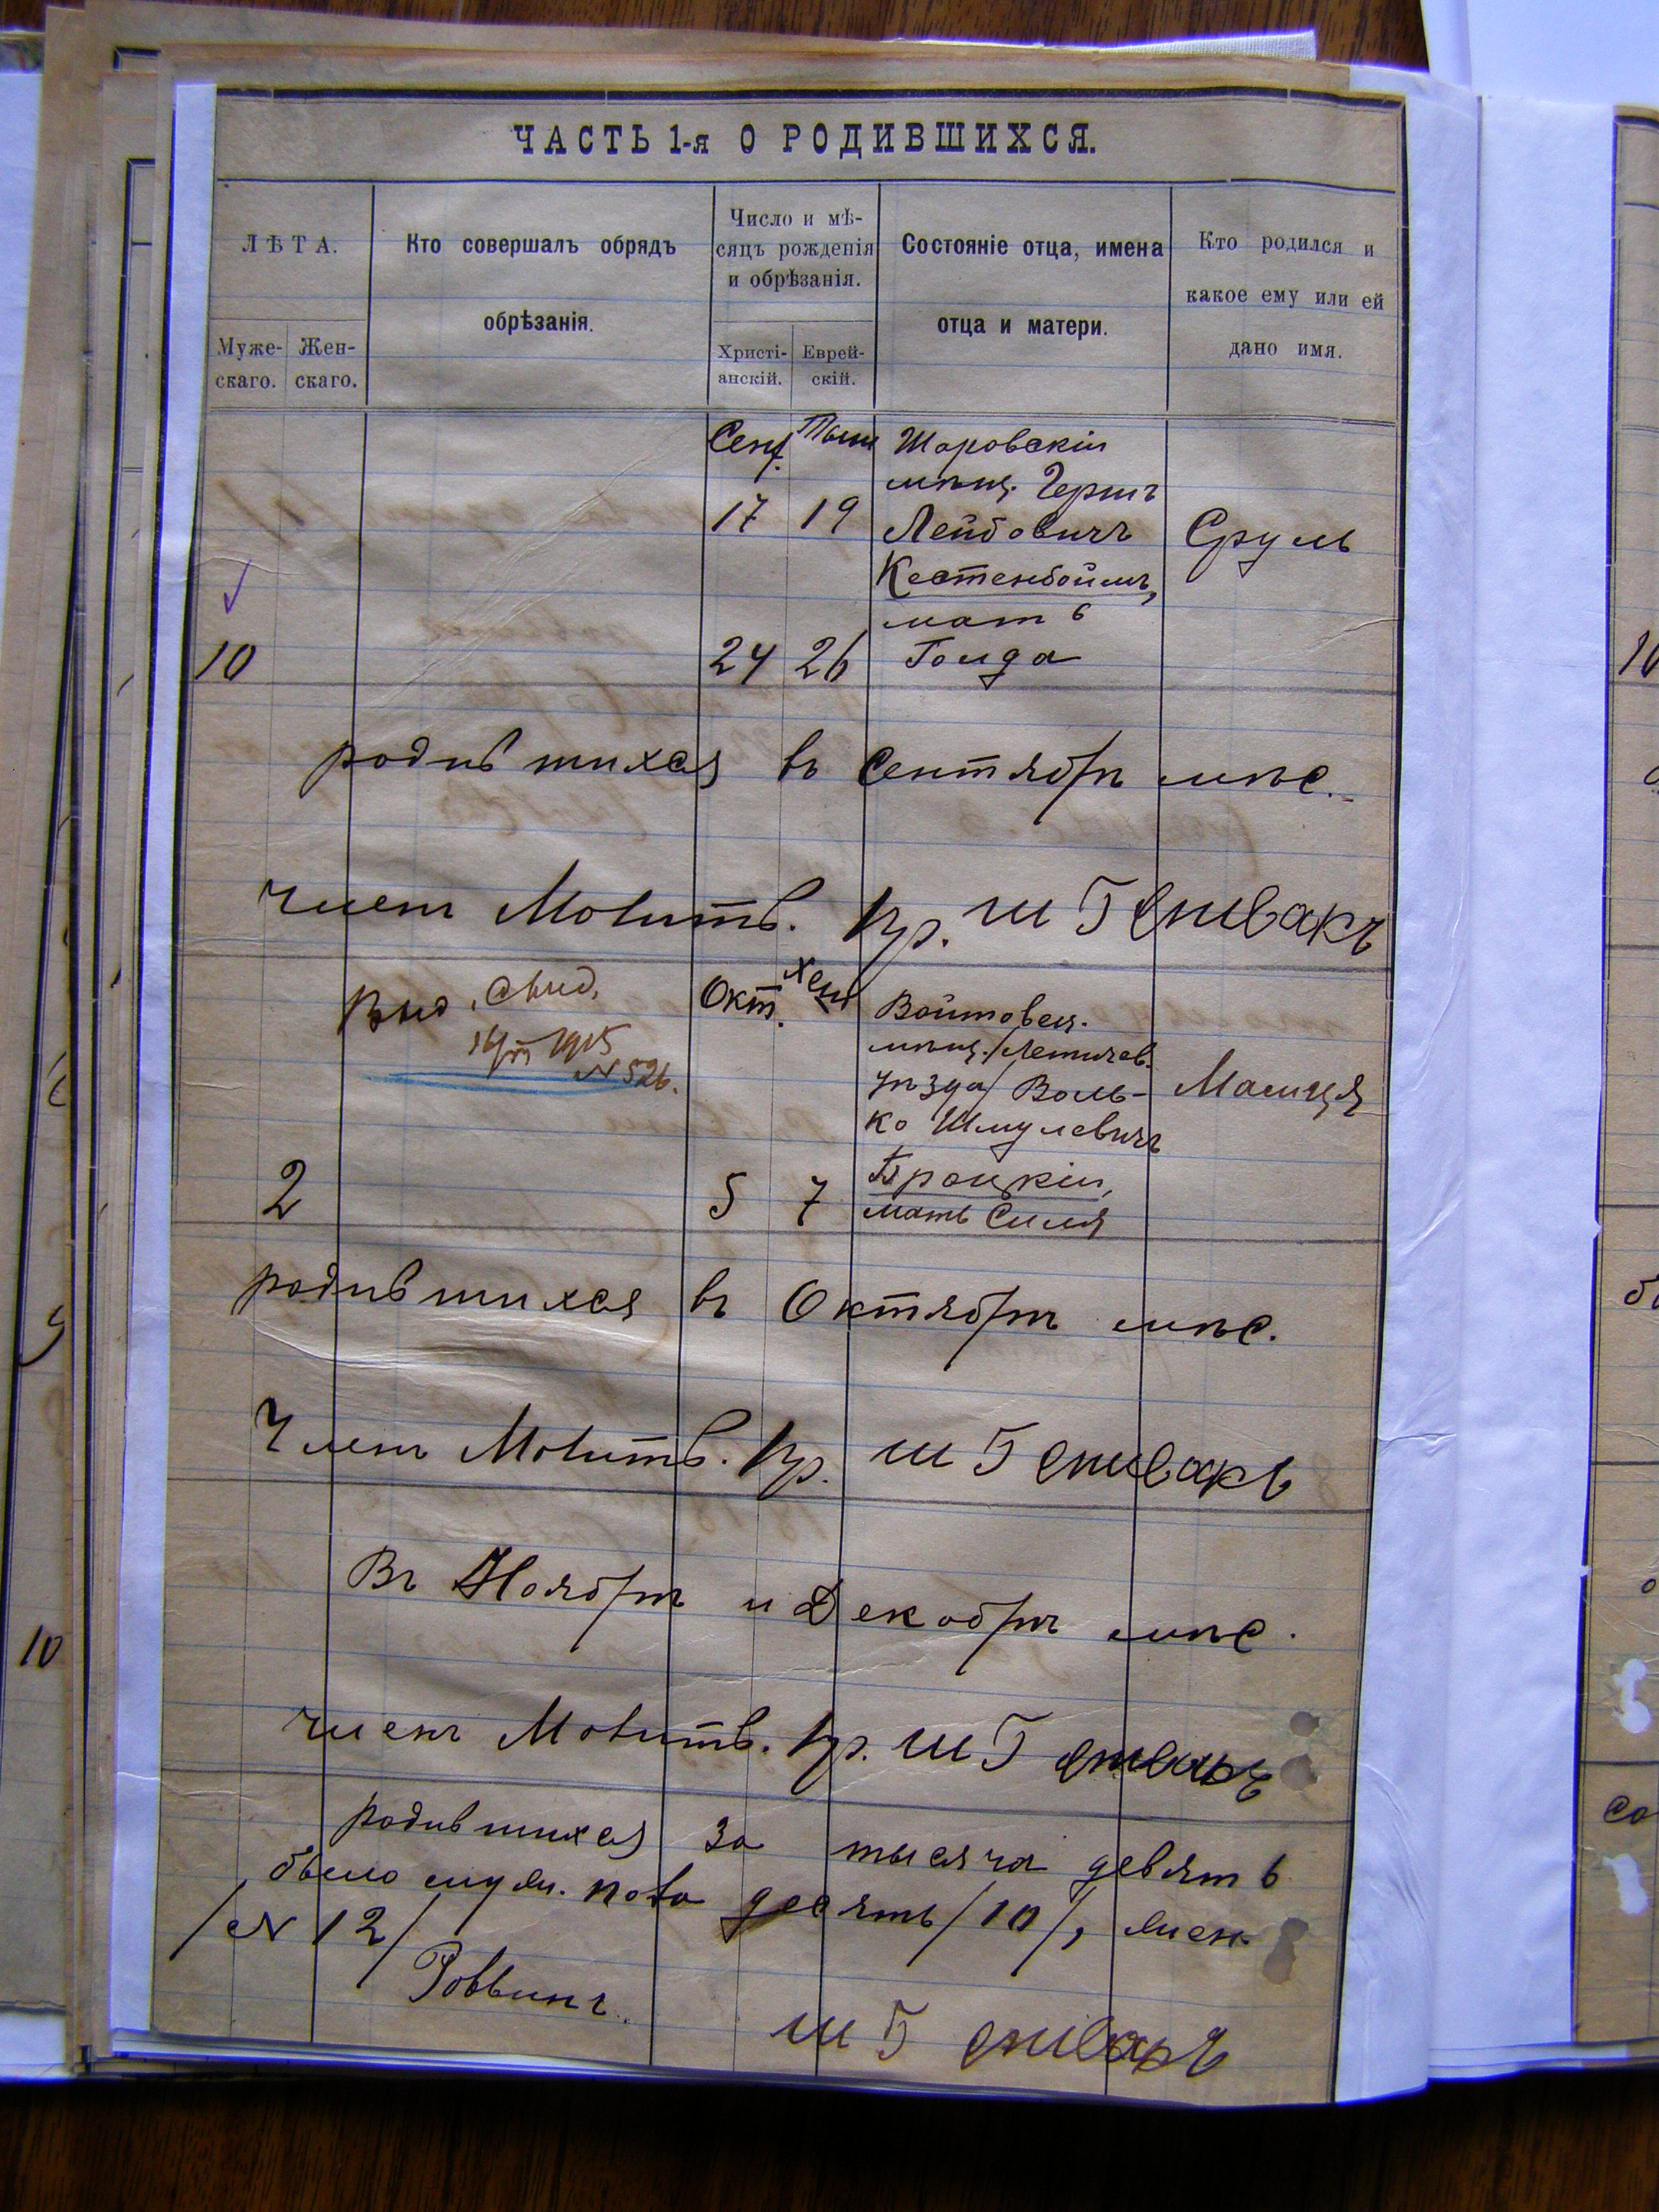 ЧАСТЬ 1-я О РОДИВШИХСЯ.
ЛѢТА.
Муже-
скаго.
Жен-
скаго.
Кто совершалъ обрядъ
обрѣзанія.
Число и мѣ-
сяцъ рожденія
и обрѣзанія.
Христі-
анскій.
Еврей-
скій.
Состояніе отца, имена
отца и матери.
Кто родился и
какое ему или ей
дано имя.
Сент. Тыш
Шаровскій
мѣщ. Гершъ
17 19 Лейбовичъ Сруль
Кестенбоймъ,
мать
10 24 26 Голда
родившихся въ Сентябрѣ мѣс.
членъ Молитв. Пр. Ш Генивакъ
Выд. свид.
1915
N 526.
Окт. Хеш
Войтовец.
мѣщ. /Летичев.
уѣзда/ Воль- Малця
ко Шмулевичъ
2 5 7 Троцкій,
мать Силя
родившихся въ Октябрѣ мѣс.
Членъ Молитв. Пр. Ш Генивакъ
Въ Ноябрѣ и Декабрѣ мѣс.
членъ Молитв. Пр. Ш Генивакъ
родившихся за тысяча девять
было муж. пола десять /10/, жен.
/N 12/
Раввинъ
Ш Генивакъ
10